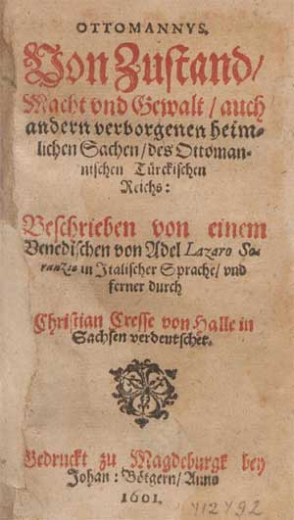 OTTOMANNVS.
Von Zustand/
Macht vnd Gewalt / auch
andern verborgenen heim-
lichen Sachen / des Ottoman-
nischen Türckischen
Reichs:
Beschrieben von einem
Venedischen von Adel Lazaro So-
ranzio in Italischer Sprache / vnd
ferner durch
Christian Cresse von Halle in
Sachsen verdeutschet.
Gedruckt zu Magdeburgk bey
Johan: Bötgern / Anno
1601.
412792